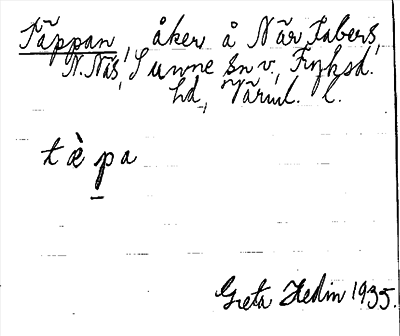 Täppan, åker å När Tabers,
N. Näs, Sunne sn v., Fryksd.
hd, Värml. l.
tὰpa
Greta Hedin 1935.